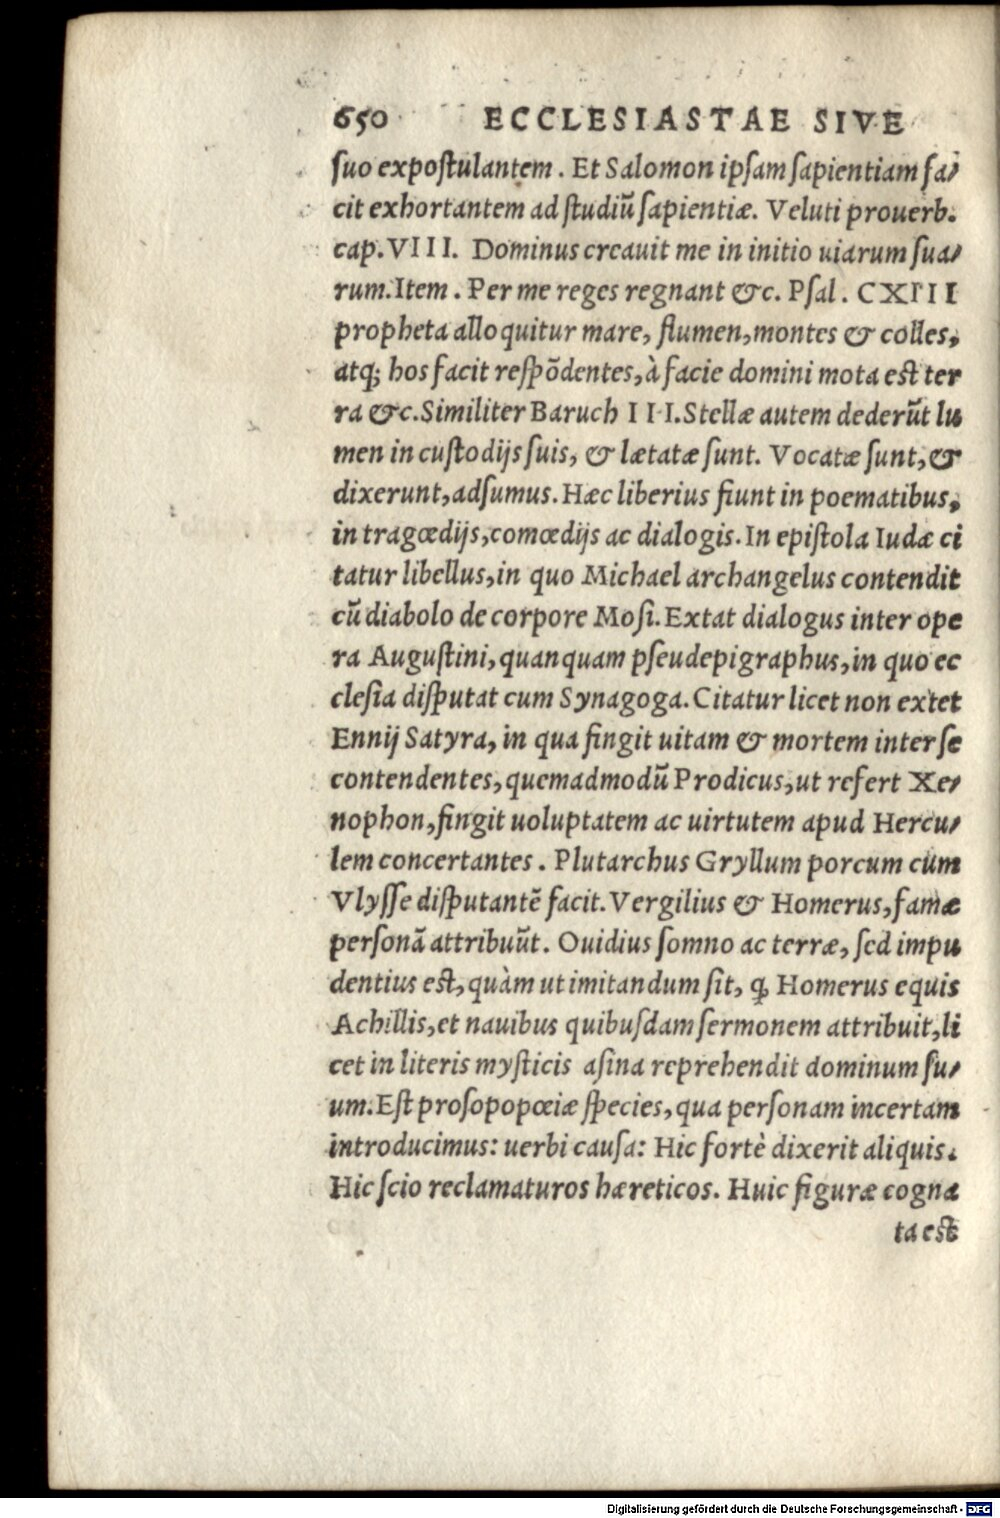 650 ECCLESIASTAE SIVE
ſuo expoſtulantem. Et Salomon ipſam ſapientiam fa⸗
cit exhortantem ad ſtudiũ ſapientiæ. Veluti prouerb.
cap. VIII. Dominus creauit me in initio uiarum ſua⸗
rum. Item. Per me reges regnant &c. Pſal. CXIII
propheta alloquitur mare, flumen, montes & colles,
atq; hos facit reſpõdentes, à facie domini mota eſt ter
ra &c. Similiter Baruch III. Stellæ autem dederũt lu
men in cuſtodijs ſuis, & lætatæ ſunt. Vocatæ ſunt, &
dixerunt, adſumus. Hæc liberius fiunt in poematibus,
in tragœdijs, comœdijs ac dialogis. In epiſtola Iudæ ci
tatur libellus, in quo Michael archangelus contendit
cũ diabolo de corpore Moſi. Extat dialogus inter ope
ra Auguſtini, quanquam pſeudepigraphus, in quo ec
cleſia diſputat cum Synagoga. Citatur licet non extet
Ennij Satyra, in qua fingit uitam & mortem inter ſe
contendentes, quemadmodũ Prodicus, ut refert Xe⸗
nophon, fingit uoluptatem ac uirtutem apud Hercu⸗
lem concertantes. Plutarchus Gryllum porcum cum
Vlyſſe diſputantẽ facit. Vergilius & Homerus, famæ
perſonã attribuũt. Ouidius ſomno ac terræ, ſed impu
dentius eſt, quàm ut imitandum ſit, ꝙ Homerus equis
Achillis, et nauibus quibuſdam ſermonem attribuit, li
cet in literis myſticis aſina reprehendit dominum ſu⸗
um. Eſt proſopopœiæ ſpecies, qua perſonam incertam
introducimus: uerbi cauſa: Hic fortè dixerit aliquis.
Hic ſcio reclamaturos hæreticos. Huic figuræ cogna
ta eſt
Digitalisierung gefördert durch die Deutsche Forschungsgemeinschaft - DFG